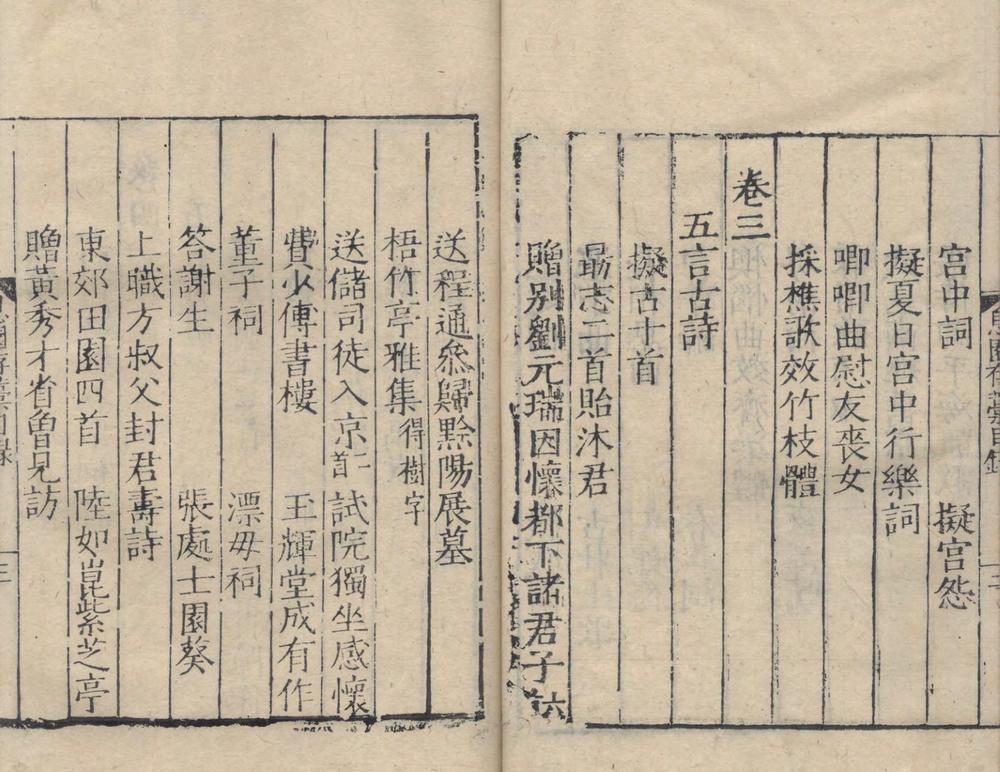 宫中詞 擬宫怨
擬夏日宫中行樂詞
唧唧曲慰友喪女
採樵歌效竹枝體
卷三
五言古詩
擬古十首
勗志二首貽沐君
贈别劉元瑞因懷都下諸君子六
送程通叅歸黔陽展墓
梧竹亭雅集得樹字
送儲司徒入京二首 試院獨坐感懷
費少傅書樓 玉輝堂成有作
董子祠 漂母祠
答謝生 張處士園葵
上職方叔父封君壽詩
東郊田園四首 陸如崑紫芝亭
贈黃秀才省曾見訪